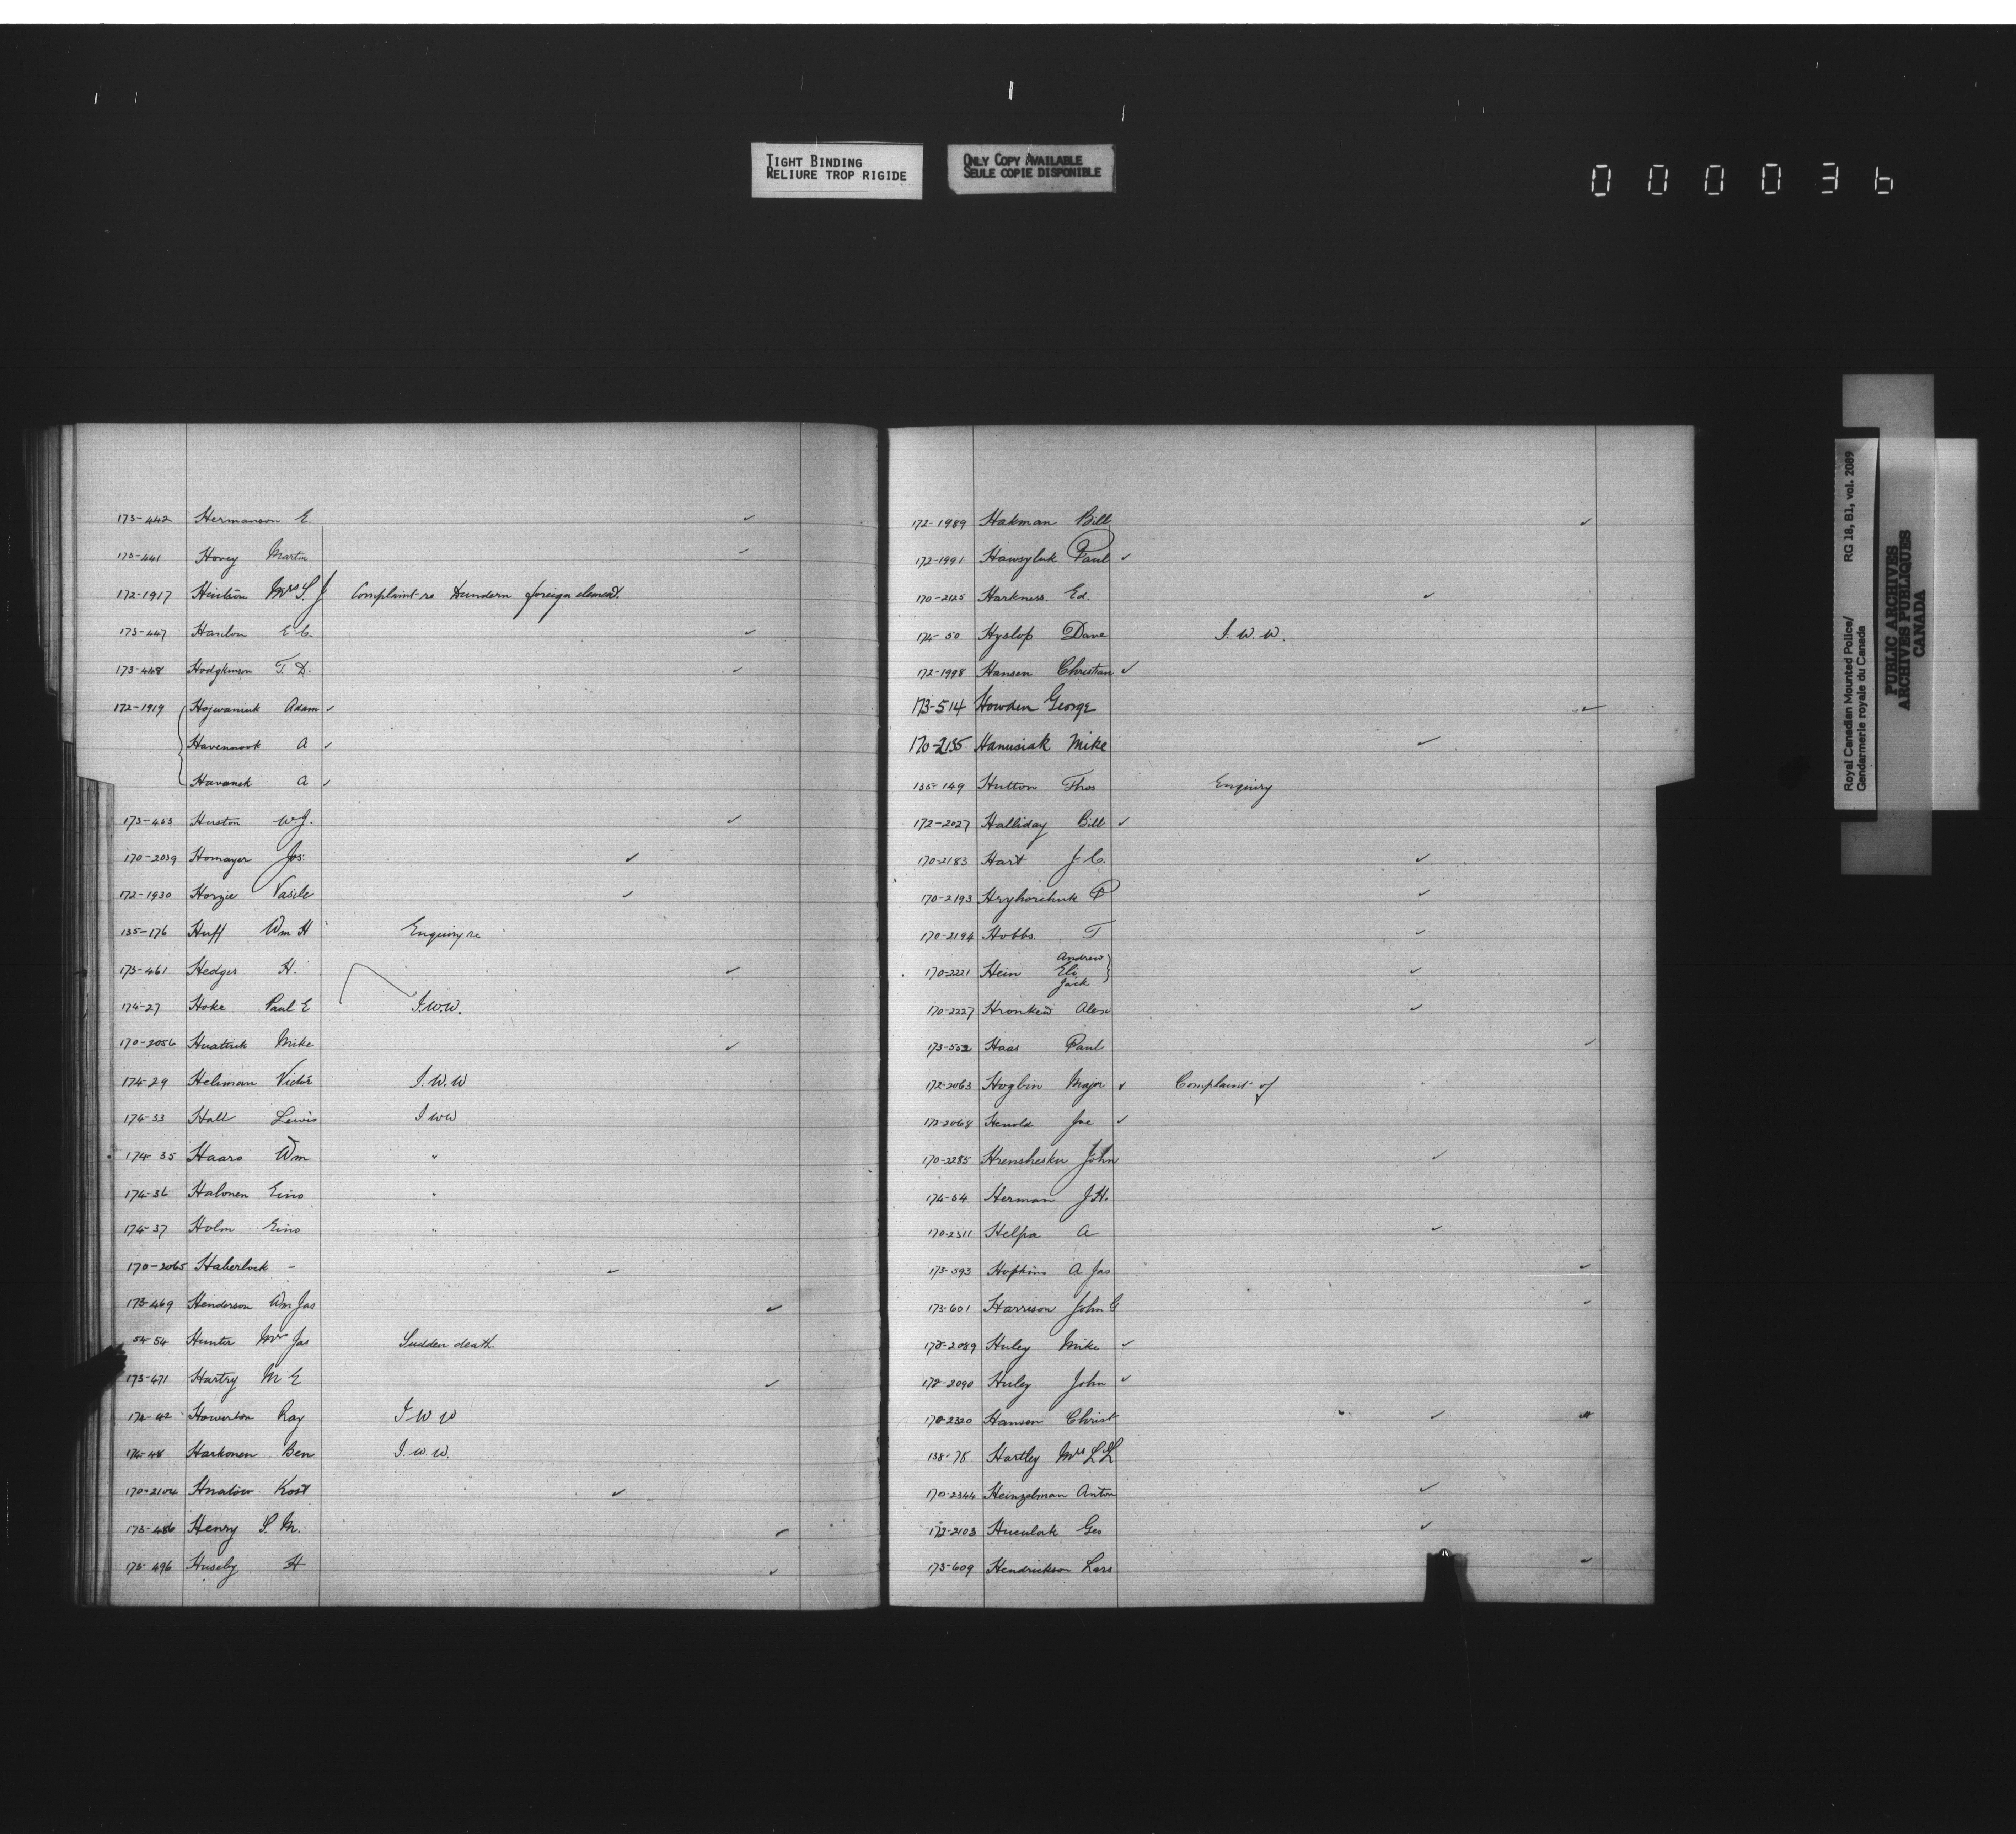 TIGHT BINDING
RELIURE TROP RIGIDE
ONLY COPY AVAILABLE
SEULE COPIE DISPONIBLE
000036
173-442 Hermanson E. ✓
173-441 Hovey Martin ✓
172-1917 Mrs S J Complaint re Dundern foreign element.
173-447 Hanlon E.C. ✓
173-448 Hodgkinson T. D. ✓
172-1919 Hojwaniuk Adam ✓
Havennook A ✓
Havanek A ✓
173-453 Huston W.J. ✓
170-2039 Homayer Jos. ✓
172-1930 Horzie Vasile ✓
135-176 Huff Wm H Enquiry re
173-461 Hedges H. ✓
174-27 Hoke Paul E I.W.W.
170-2056 Mike ✓
174-29 Heliman Victor I.W.W
174-33 Hall Lewis I WW
174-35 Haaro Wm "
174-36 Halonen Eino "
174-37 Holm Eino "
170-2065 Haberlock - ✓
173-469 Henderson Wm Jas ✓
54-54 Hunter Mrs Jas Sudden death.
173-471 Hartry M E ✓
174-42 Howerton Ray I W W
174-48 Harkonen Ben I. W. W.
170-2104 Hnatow Kost ✓
173-486 Henry S. M. ✓
173-496 Huseby H ✓
172-1989 Hakman Bill ✓
172-1991 Hawsyluk Paul ✓
170-2125 Harkness Ed. ✓
174-50 Hyslop Dave I. W. W.
172-1998 Hansen Christian ✓
173-514 Howden George ✓
170-2135 Hanusiak Mike ✓
135-149 Hutton Thos Enquiry
172-2027 Halliday Bill ✓
170-2183 Hart J. C. ✓
170-2193 Hryhorchuk P ✓
170-2194 Hobbs. T ✓
170-2221 Hein Andrew Eli Jack ✓
170-2227 Alex ✓
173-552 Haas Paul ✓
172-2063 Hogbin Major ✓ Complaint of
172-2068 Henold Joe ✓
170-2285 Hrenshesku John ✓
174-54 Herman J.H.
170-2311 Helpa A ✓
173-593 Hopkins A Jas ✓
173-601 Harrison John G ✓
172-2089 Huley Mike ✓
172-2090 Huley John ✓
170-2320 Hansen Christ ✓
138-78 Hartley Mrs L L
170-2344 Heinzelman Anton ✓
172-2103 Geo ✓
173-609 Hendrickson Lars ✓
Royal Canadian Mounted Police/ RG 18, B1, vol. 2089
Gendarmerie royale du Canada
PUBLIC ARCHIVES
ARCHIVES PUBLIQUES
CANADA